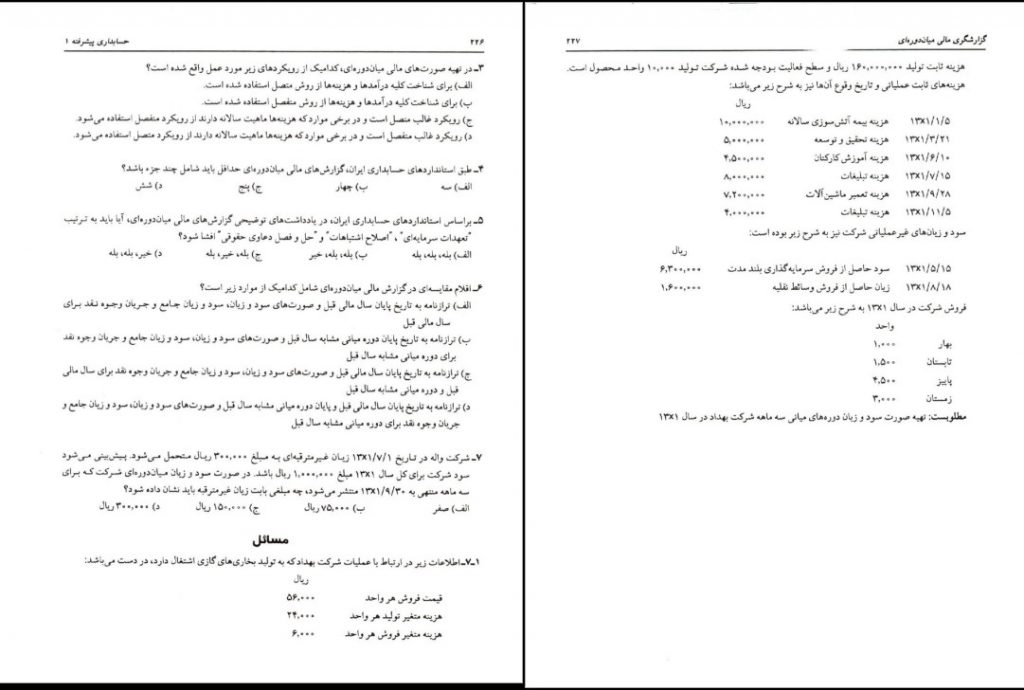 ۲۲۶ حسابداری پیشرفته ۱
۳ـ در تهیه صورت‌های مالی میان‌دوره‌ای، کدامیک از رویکردهای زیر مورد عمل واقع شده است؟
الف) برای شناخت کلیه درآمدها و هزینه‌ها از روش متصل استفاده شده است.
ب) برای شناخت کلیه درآمدها و هزینه‌ها از روش منفصل استفاده شده است.
ج) رویکرد غالب متصل است و در برخی موارد که هزینه‌ها ماهیت سالانه دارند از رویکرد منفصل استفاده می‌شود.
د) رویکرد غالب منفصل است و در برخی موارد که هزینه‌ها ماهیت سالانه دارند از رویکرد متصل استفاده می‌شود.
۴ـ طبق استانداردهای حسابداری ایران، گزارش‌های مالی میان‌دوره‌ای حداقل باید شامل چند جزء باشد؟
الف) سه ب) چهار ج) پنج د) شش
۵ـ براساس استانداردهای حسابداری ایران، در یادداشت‌های توضیحی گزارش‌های مالی میان‌دوره‌ای، آیا باید به ترتیب
"تعهدات سرمایه‌ای"، "اصلاح اشتباهات" و "حل و فصل دعاوی حقوقی" افشا شود؟
الف) بله، بله، بله ب) بله، بله، خیر ج) بله، خیر، بله د) خیر، بله، بله
۶ـ اقلام مقایسه‌ای در گزارش مالی میان‌دوره‌ای شامل کدامیک از موارد زیر است؟
الف) ترازنامه به تاریخ پایان سال مالی قبل و صورت‌های سود و زیان، سود و زیان جامع و جریان وجوه نقد برای
سال مالی قبل
ب) ترازنامه به تاریخ پایان دوره میانی مشابه سال قبل و صورت‌های سود و زیان، سود و زیان جامع و جریان وجوه نقد
برای دوره میانی مشابه سال قبل
ج) ترازنامه به تاریخ پایان سال مالی قبل و صورت‌های سود و زیان، سود زیان جامع و جریان وجوه نقد برای سال مالی
قبل و دوره میانی مشابه سال قبل
د) ترازنامه به تاریخ پایان سال مالی قبل و پایان دوره میانی مشابه سال قبل و صورت‌های سود و زیان، سود و زیان جامع و
جریان وجوه نقد برای دوره میانی مشابه سال قبل
۷ـ شرکت واله در تاریخ ۱۳X۱/۷/۱ زیان غیرمترقبه‌ای به مبلغ ۳۰۰,۰۰۰ ریال متحمل می‌شود. پیش‌بینی می‌شود
سود شرکت برای کل سال ۱۳X۱ مبلغ ۱,۰۰۰,۰۰۰ ریال باشد. در صورت سود و زیان میان‌دوره‌ای شرکت که برای
سه ماهه منتهی به ۱۳X۱/۹/۳۰ منتشر می‌شود، چه مبلغی بابت زیان غیرمترقبه باید نشان داده شود؟
الف) صفر ب) ۷۵,۰۰۰ ریال ج) ۱۵۰,۰۰۰ ریال د) ۳۰۰,۰۰۰ ریال
مسائل
۷ـ۱ـ اطلاعات زیر در ارتباط با عملیات شرکت بهداد که به تولید بخاری‌های گازی اشتغال دارد، در دست می‌باشد:
ریال
قیمت فروش هر واحد ۵۶,۰۰۰
هزینه متغیر تولید هر واحد ۲۴,۰۰۰
هزینه متغیر فروش هر واحد ۶,۰۰۰
گزارشگری مالی میان‌دوره‌ای ۲۲۷
هزینه ثابت تولید ۱۶۰,۰۰۰,۰۰۰ ریال و سطح فعالیت بودجه شده شرکت تولید ۱۰,۰۰۰ واحد محصول است.
هزینه‌های ثابت عملیاتی و تاریخ وقوع آن‌ها نیز به شرح زیر می‌باشد:
ریال
۱۳X۱/۱/۵ هزینه بیمه آتش‌سوزی سالانه ۱۰,۰۰۰,۰۰۰
۱۳X۱/۳/۲۱ هزینه تحقیق و توسعه ۵,۰۰۰,۰۰۰
۱۳X۱/۶/۱۰ هزینه آموزش کارکنان ۴,۵۰۰,۰۰۰
۱۳X۱/۷/۱۵ هزینه تبلیغات ۸,۰۰۰,۰۰۰
۱۳X۱/۹/۲۸ هزینه تعمیر ماشین‌آلات ۷,۲۰۰,۰۰۰
۱۳X۱/۱۱/۵ هزینه تبلیغات ۴,۰۰۰,۰۰۰
سود و زیان‌های غیرعملیاتی شرکت نیز به شرح زیر بوده است:
ریال
۱۳X۱/۵/۱۵ سود حاصل از فروش سرمایه‌گذاری بلند مدت ۶,۳۰۰,۰۰۰
۱۳X۱/۸/۱۸ زیان حاصل از فروش وسائط نقلیه ۱,۶۰۰,۰۰۰
فروش شرکت در سال ۱۳X۱ به شرح زیر می‌باشد:
واحد
بهار ۱,۰۰۰
تابستان ۱,۵۰۰
پاییز ۴,۵۰۰
زمستان ۳,۰۰۰
مطلوبست: تهیه صورت سود و زیان دوره‌های میانی سه ماهه شرکت بهداد در سال ۱۳X۱